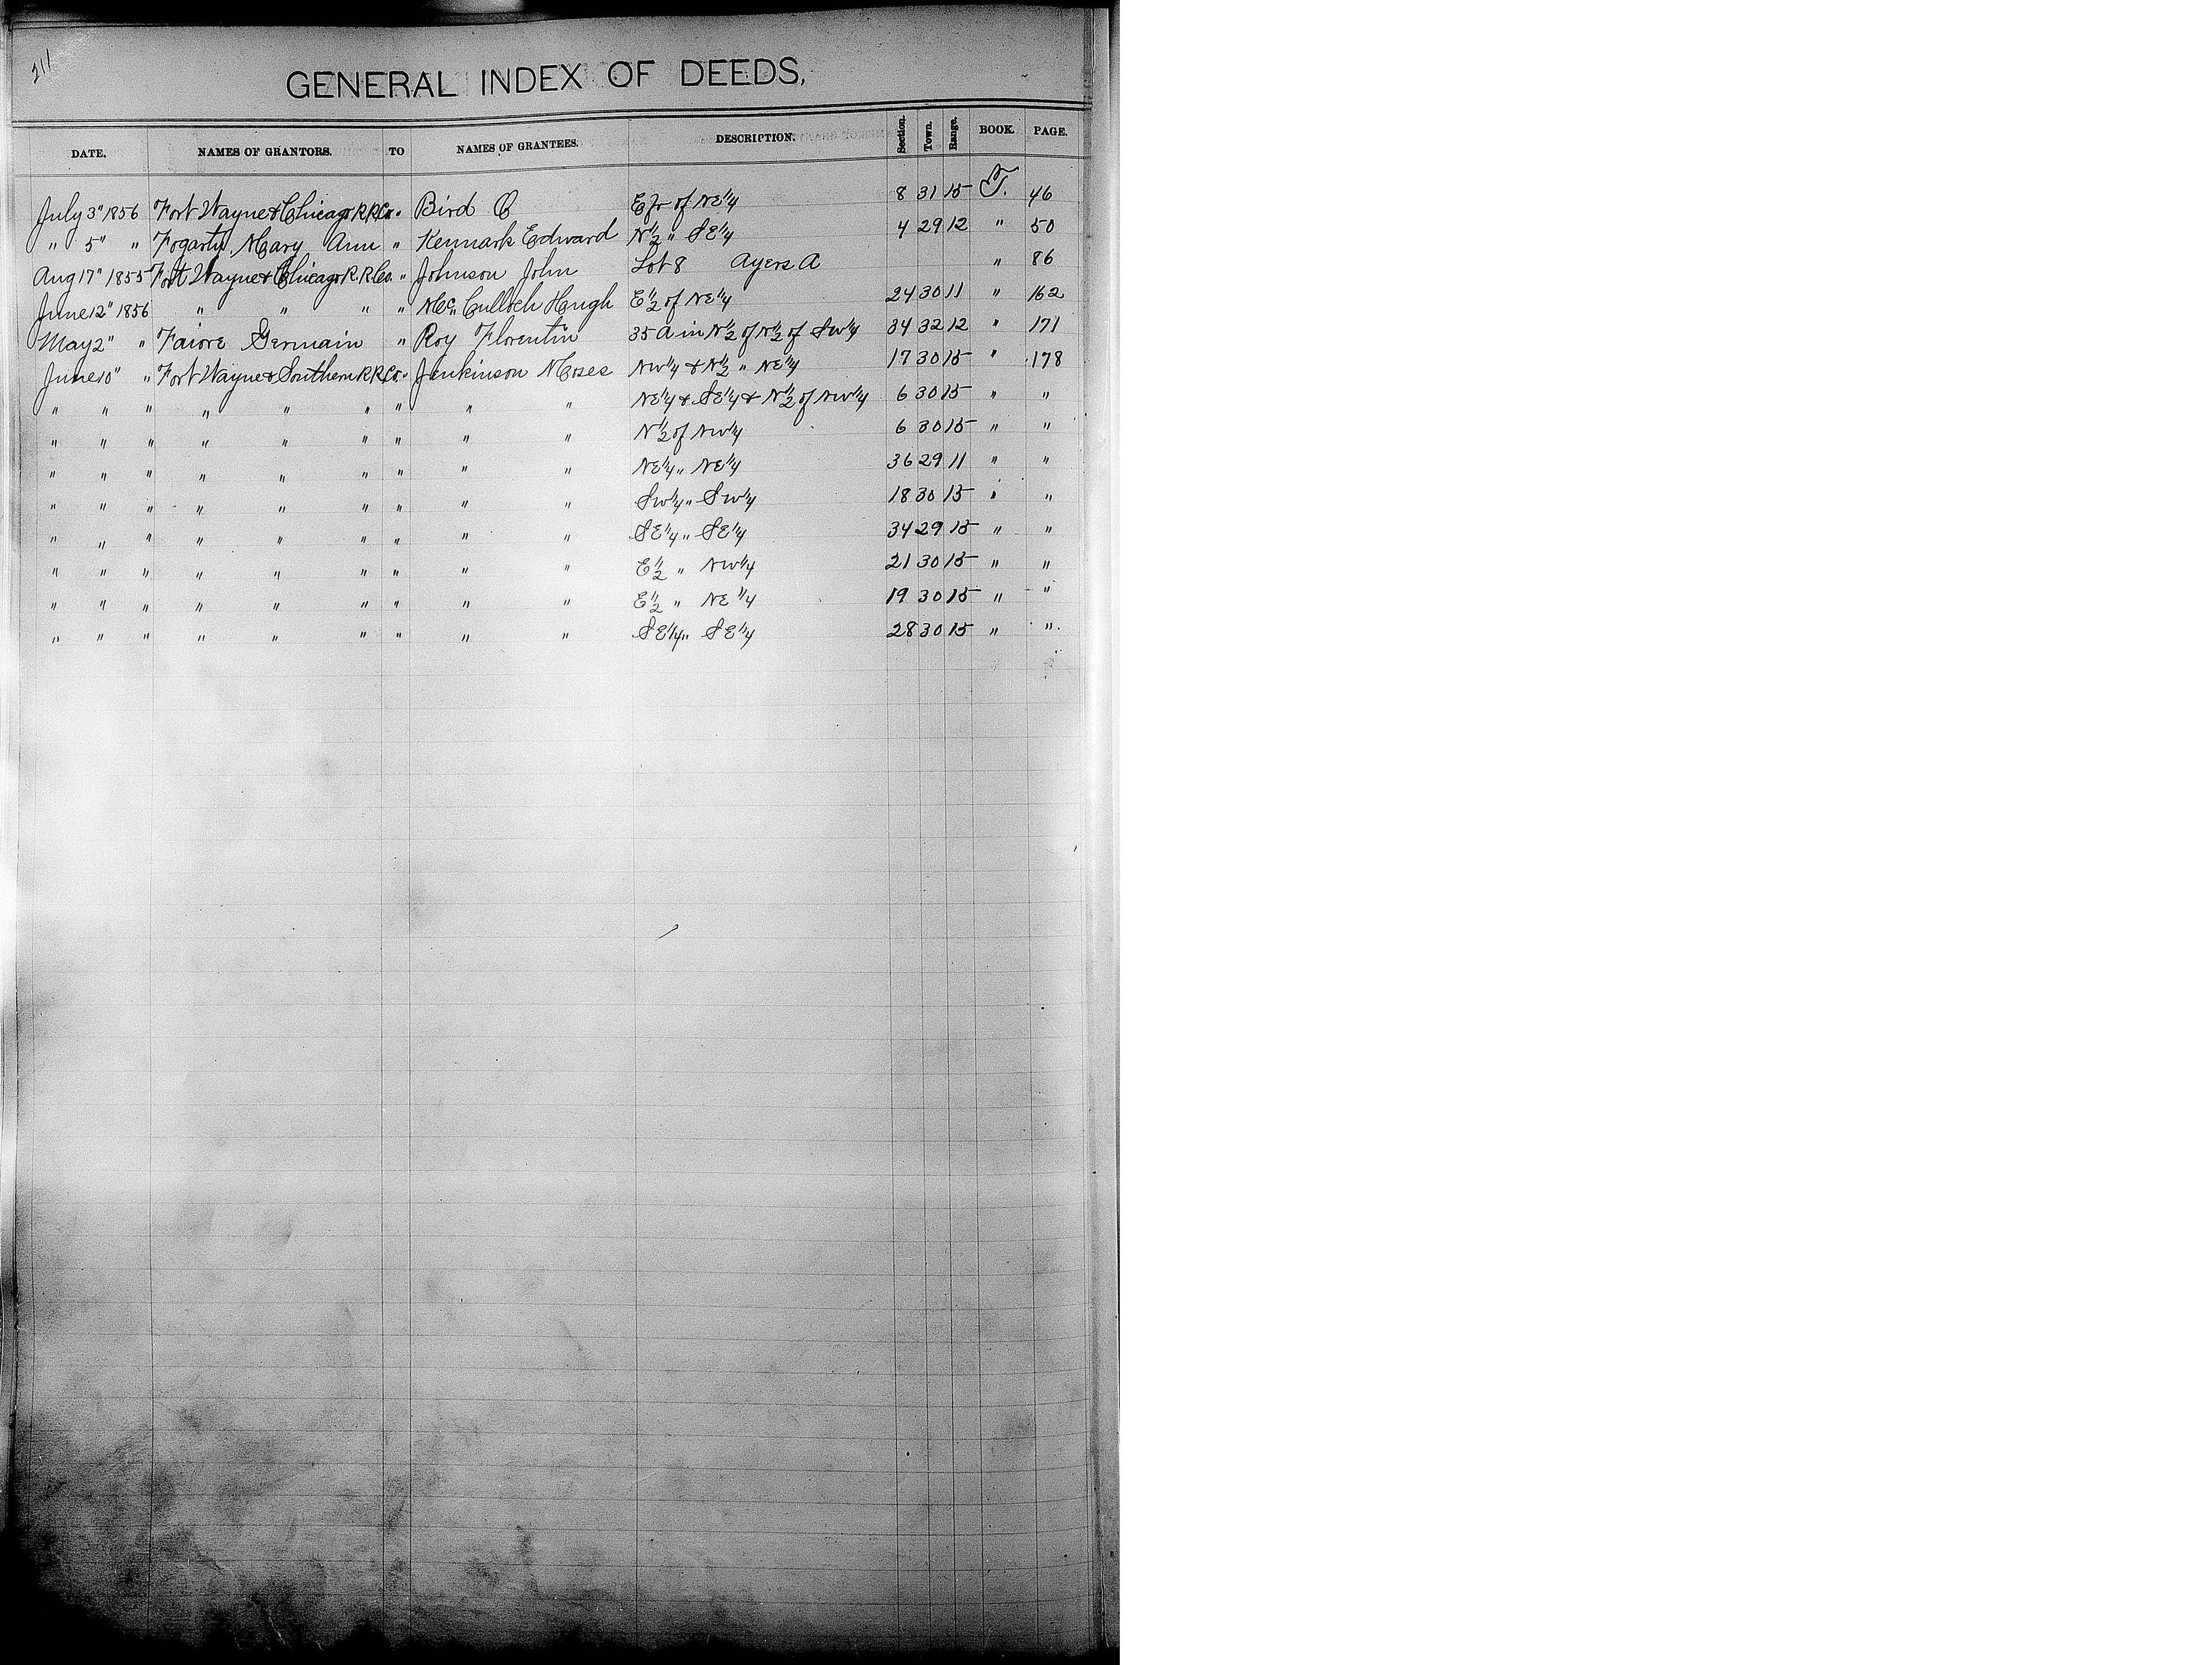 211
GENERAL INDEX OF DEEDS,
DATE. NAMES OF GRANTORS. TO NAMES OF GRANTEES. DESCRIPTION. Section. Town. Range. BOOK. PAGE.
July 3" 1856 Fort Wayne & Chicago R.R.Co. " Bird C E fr of NE 1/4 8 31 15 T. 46
" 5" " Fogarty Mary Ann " Kennark Edward N 1/2 " SE 1/4 4 29 12 " 50
Aug 17" 1855 Fort Wayne & Chicago R.R.Co. " Johnson John Lot 8 Ayers A " 86
June 12" 1856 " " " " Mc Culloch Hugh E 1/2 of NE 1/4 24 30 11 " 162
May 2" " Faiore Germain " Roy Florentin 35 A in N 1/2 of N 1/2 of SW 1/4 34 32 12 " 171
June 10" " Fort Wayne & Southern R.R.Co. " Jenkinson Moses NW 1/4 & N 1/2 " NE 1/4 17 30 15 " 178
" " " " " " " " " NE 1/4 & SE 1/4 & N 1/2 of NW 1/4 6 30 15 " "
" " " " " " " " " N 1/2 of NW 1/4 6 30 15 " "
" " " " " " " " " NE 1/4 " NE 1/4 36 29 11 " "
" " " " " " " " " SW 1/4 " SW 1/4 18 30 15 " "
" " " " " " " " " SE 1/4 " SE 1/4 34 29 15 " "
" " " " " " " " " E 1/2 " NW 1/4 21 30 15 " "
" " " " " " " " " E 1/2 " NE 1/4 19 30 15 " "
" " " " " " " " " SE 1/4 " SE 1/4 28 30 15 " "